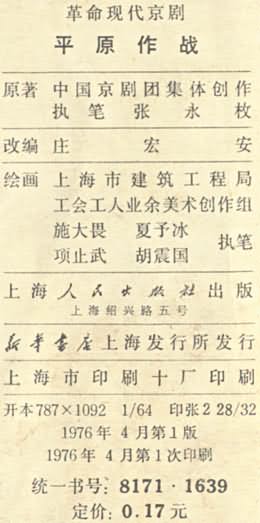 革命现代京剧
平原作战
原著 中国京剧团集体创作
执笔 张永枚
改编 庄宏安
绘画 上海市建筑工程局
工会工人业余美术创作组
施大畏 夏予冰
项止武 胡震国 执笔
上海人民出版社出版
上海绍兴路五号
新华书店上海发行所发行
上海市印刷十厂印刷
开本787×1092 1/64 印张2 28/32
1976年4月第1版
1976年4月第1次印刷
统一书号：8171·1639
定价：0.17元